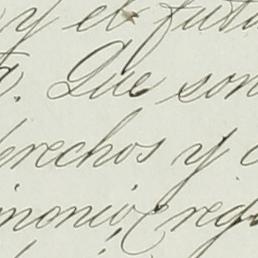 y el futu
a. Que son
derechos y o
imonio, reg